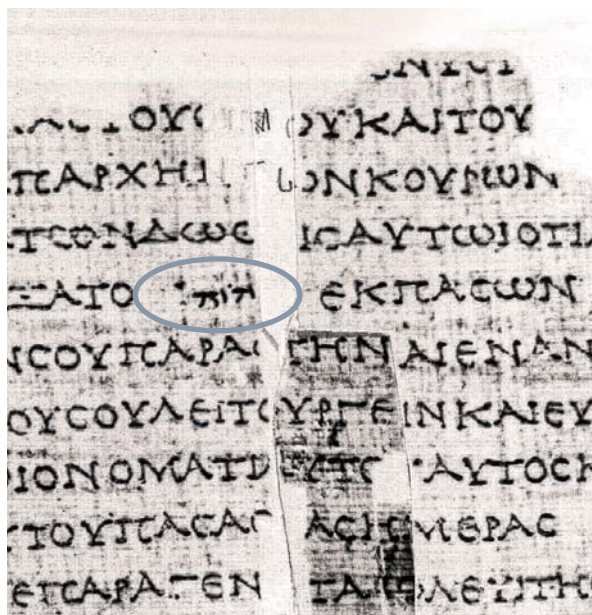 ΤΟΥϹ ΟΥΚΑΙΤΟΥ
ΠΑΡΧΗ ΩΝΚΟΥΡΩΝ
ΤΩΝΔΩϹΕ ΙϹΑΥΤΩΙΟΤΙ
ΞΑΤΟ יהוה ΕΚΠΑϹΩΝ
ΝϹΟΥΠΑΡΑϹ ΤΗΝΑΙΕΝΑΝ
ΟΥϹΟΥΛΕΙΤΟΥΡΓΕΙΝΚΑΙΕΥ
ΙΟΝΟΜΑΤΙ ΥΤΟ ΑΥΤΟϹΚ
ΤΟΥΠΑϹΑϹ ΑϹ ΜΕΡΑϹ
ΕΠΑΡΑΓΕΝ ΤΑΙΟΛΕΥΙΤΗ